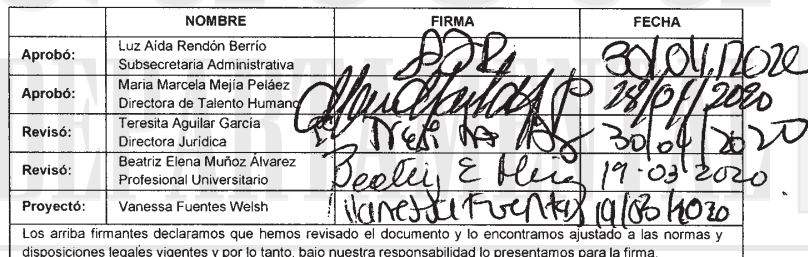 NOMBRE FIRMA FECHA
Aprobó: Luz Aída Rendón Berrío
Subsecretaria Administrativa 30/04/2020
Aprobó: Maria Marcela Mejía Peláez
Directora de Talento Humano 28/04/2020
Revisó: Teresita Aguilar García
Directora Jurídica 30/04/2020
Revisó: Beatriz Elena Muñoz Álvarez
Profesional Universitario Beatriz E 19-03-2020
Proyectó: Vanessa Fuentes Welsh Vanessa Fuentes 19/03/2020
Los arriba firmantes declaramos que hemos revisado el documento y lo encontramos ajustado a las normas y
disposiciones legales vigentes y por lo tanto, bajo nuestra responsabilidad lo presentamos para la firma.